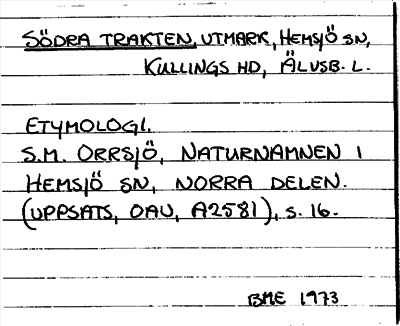 SÖDRA TRAKTEN, UTMARK, HEMSJÖ SN,
KULLINGS HD, ÄLVSB. L.
ETYMOLOGI.
S.M. ORRSJÖ, NATURNAMNEN I
HEMSJÖ SN, NORRA DELEN.
(UPPSATS, OAU, A2581), S. 16.
BME 1973